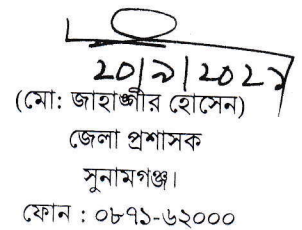 ২০|৯|২০২১
(মো: জাহাঙ্গীর হোসেন)
জেলা প্রশাসক
সুনামগঞ্জ।
ফোন : ০৮৭১-৬২০০০